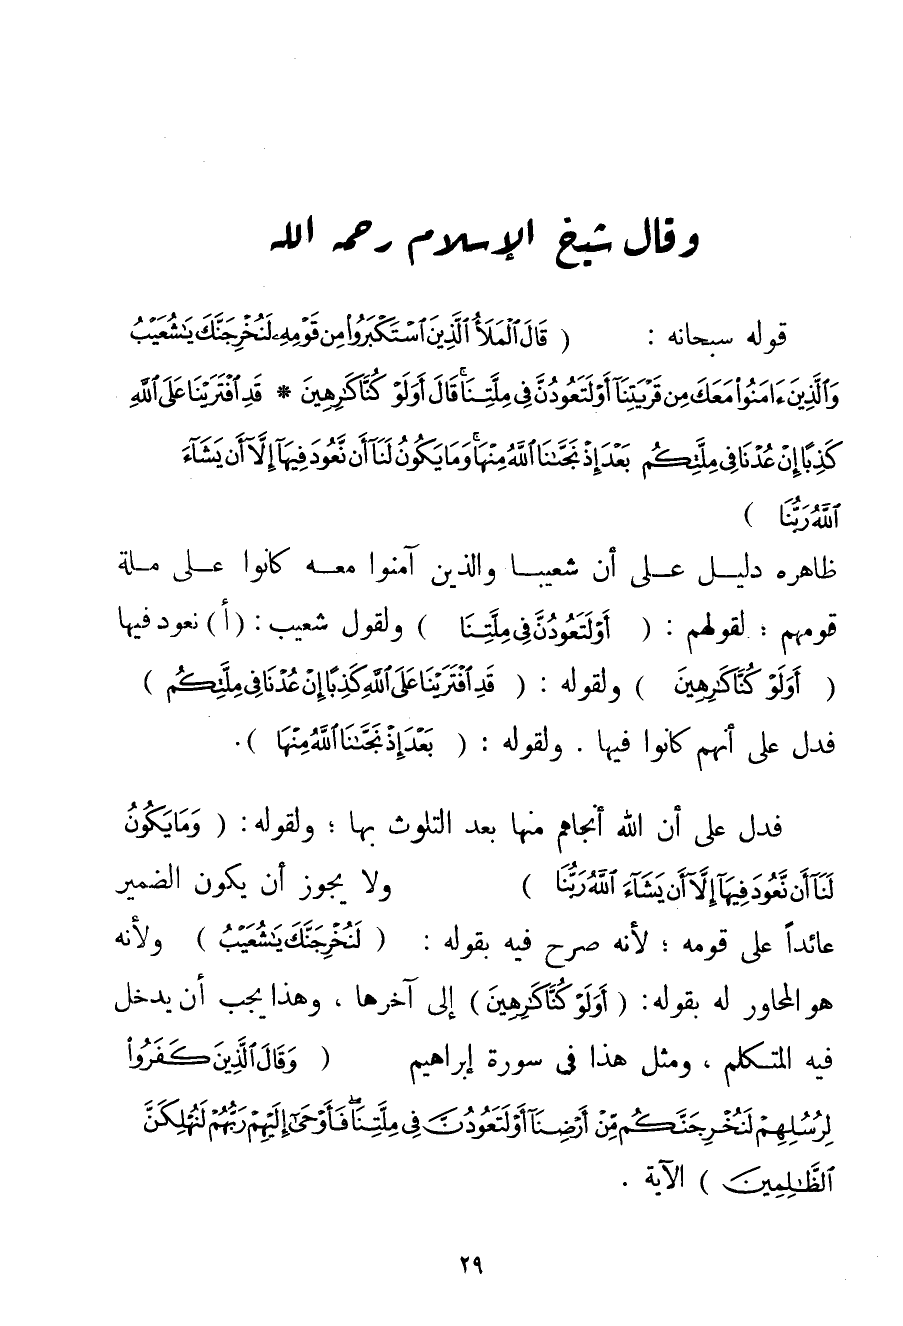 وقال شيخ الإسلام رحمه الله
قوله سبحانه : ( قَالَ ٱلْمَلَأُ ٱلَّذِينَ ٱسْتَكْبَرُوا۟ مِن قَوْمِهِۦ لَنُخْرِجَنَّكَ يَـٰشُعَيْبُ
وَٱلَّذِينَ ءَامَنُوا۟ مَعَكَ مِن قَرْيَتِنَآ أَوْ لَتَعُودُنَّ فِى مِلَّتِنَا ۚ قَالَ أَوَلَوْ كُنَّا كَـٰرِهِينَ * قَدِ ٱفْتَرَيْنَا عَلَى ٱللَّهِ
كَذِبًا إِنْ عُدْنَا فِى مِلَّتِكُم بَعْدَ إِذْ نَجَّىٰنَا ٱللَّهُ مِنْهَا ۚ وَمَا يَكُونُ لَنَآ أَن نَّعُودَ فِيهَآ إِلَّآ أَن يَشَآءَ
ٱللَّهُ رَبُّنَا )
ظاهره دليل على أن شعيبا والذين آمنوا معه كانوا على ملة
قومهم ؛ لقولهم : ( أَوْ لَتَعُودُنَّ فِى مِلَّتِنَا ) ولقول شعيب : (أ) نعود فيها
( أَوَلَوْ كُنَّا كَـٰرِهِينَ ) ولقوله : ( قَدِ ٱفْتَرَيْنَا عَلَى ٱللَّهِ كَذِبًا إِنْ عُدْنَا فِى مِلَّتِكُم )
فدل على أنهم كانوا فيها . ولقوله : ( بَعْدَ إِذْ نَجَّىٰنَا ٱللَّهُ مِنْهَا ).
فدل على أن الله أنجاهم منها بعد التلوث بها ؛ ولقوله: ( وَمَا يَكُونُ
لَنَآ أَن نَّعُودَ فِيهَآ إِلَّآ أَن يَشَآءَ ٱللَّهُ رَبُّنَا ) ولا يجوز أن يكون الضمير
عائداً على قومه ؛ لأنه صرح فيه بقوله : ( لَنُخْرِجَنَّكَ يَـٰشُعَيْبُ ) ولأنه
هو المحاور له بقوله: ( أَوَلَوْ كُنَّا كَـٰرِهِينَ ) إلى آخرها ، وهذا يجب أن يدخل
فيه المتكلم ، ومثل هذا فى سورة إبراهيم ( وَقَالَ ٱلَّذِينَ كَفَرُوا۟
لِرُسُلِهِمْ لَنُخْرِجَنَّكُم مِّنْ أَرْضِنَآ أَوْ لَتَعُودُنَّ فِى مِلَّتِنَا ۖ فَأَوْحَىٰٓ إِلَيْهِمْ رَبُّهُمْ لَنُهْلِكَنَّ
ٱلظَّـٰلِمِينَ ) الآية .
٢٩